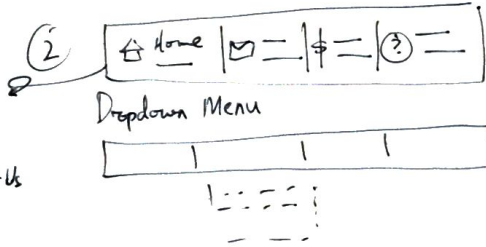 2
Home $ ?
Dropdown Menu
Us